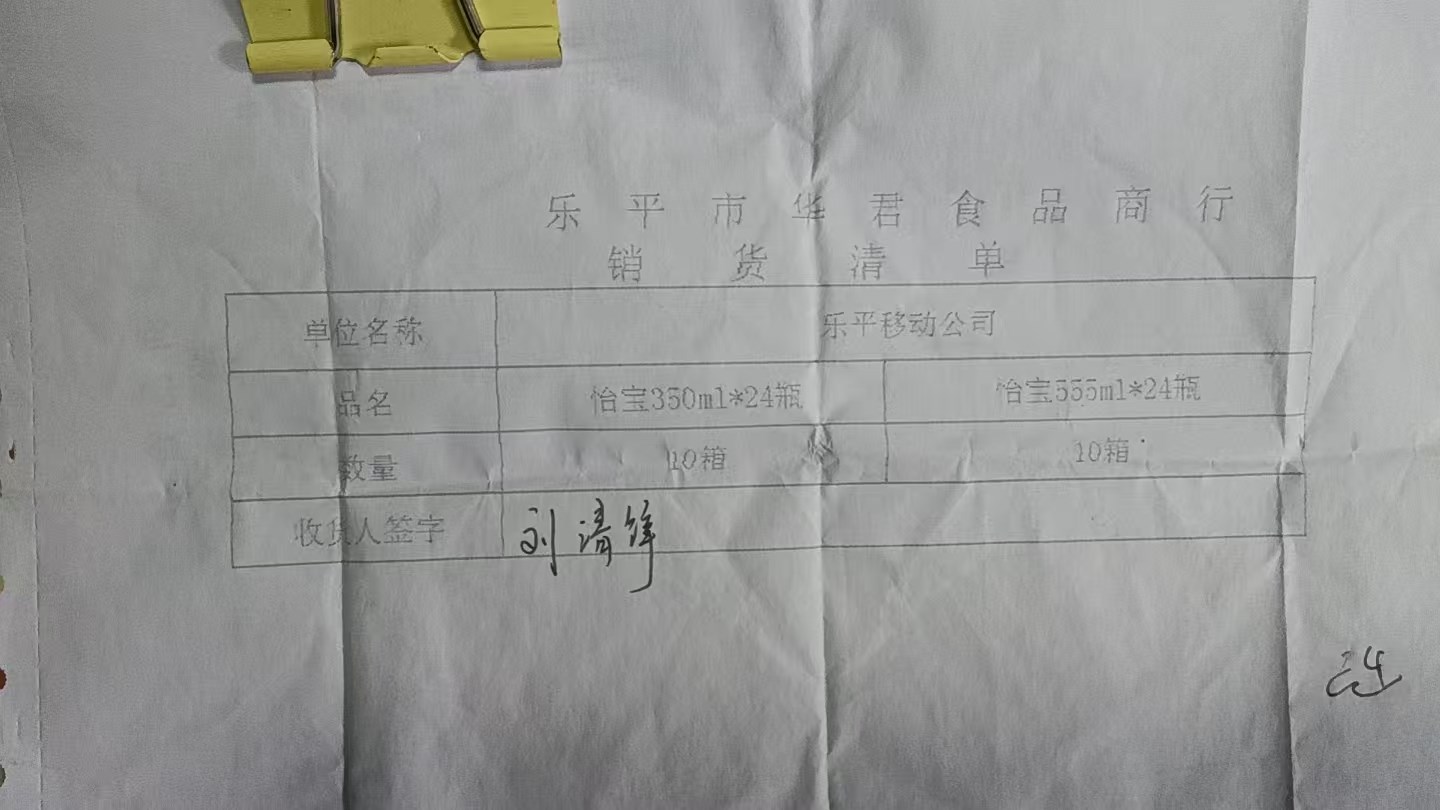 乐平市华君食品商行
销货清单
单位名称 乐平移动公司
品名 怡宝350ml*24瓶 怡宝555ml*24瓶
数量 10箱 10箱
收货人签字 刘清锋